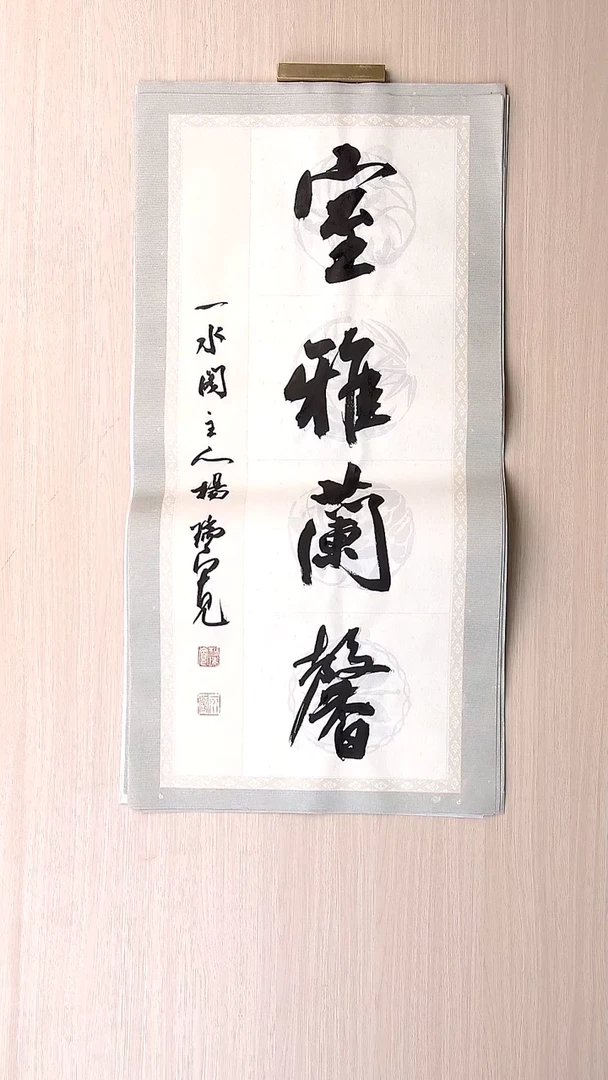 室雅蘭馨
一水閣主人楊瑞寬